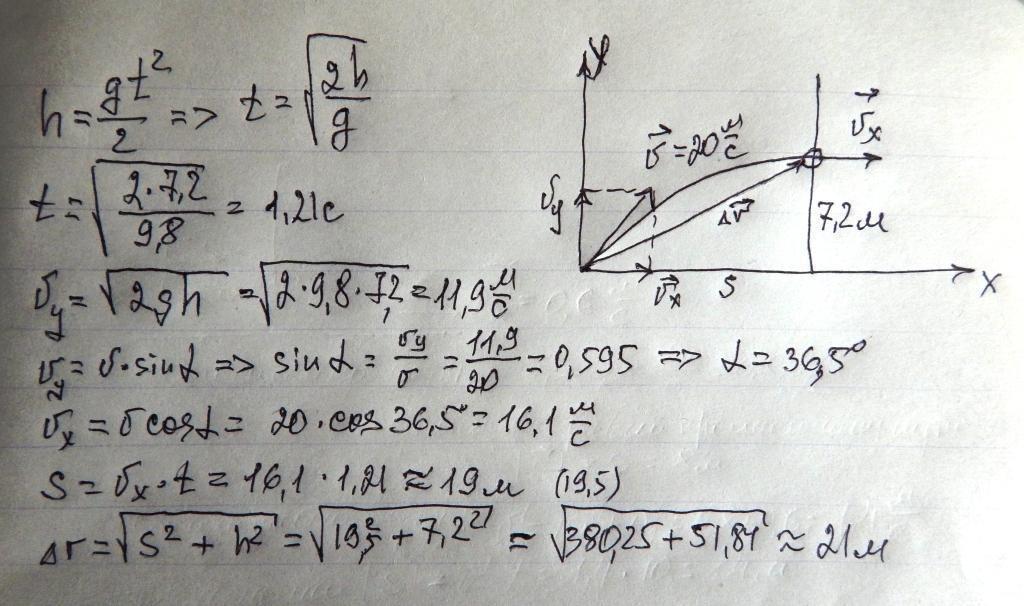 h = gt²/2 => t = √(2h/g)
t = √(2·7,2/9,8) = 1,21с
υy = √(2gh) = √(2·9,8·7,2) = 11,9 м/с
υy = υ·sinα => sinα = υy/υ = 11,9/20 = 0,595 => α = 36,5°
υx = υcosα = 20·cos36,5° = 16,1 м/с
S = υx·t = 16,1·1,21 ≈ 19м (19,5)
Δr = √(S² + h²) = √(19,5² + 7,2²) = √(380,25 + 51,84) ≈ 21м
y
υ⃗ = 20 м/с
υ⃗x
υ⃗y
Δr⃗
7,2м
υ⃗x
S
x